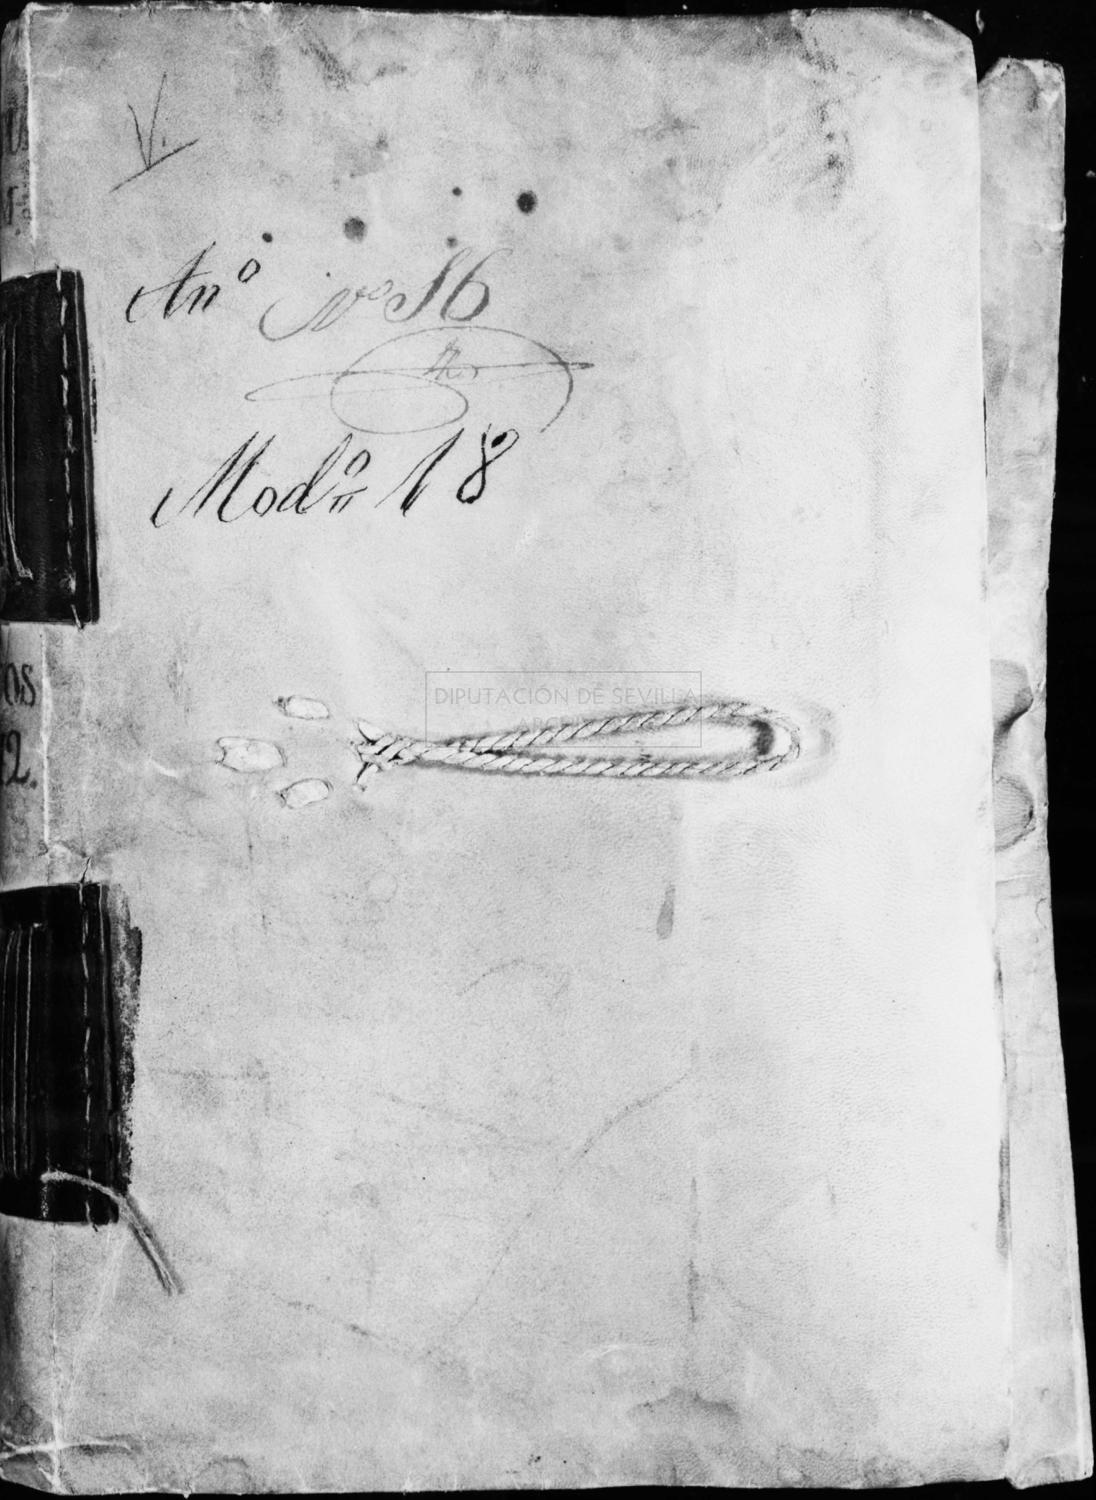 V.
Anº Nº 86
Modº 18
os
2.
DIPUTACIÓN DE SEVILLA
ARCHIVO